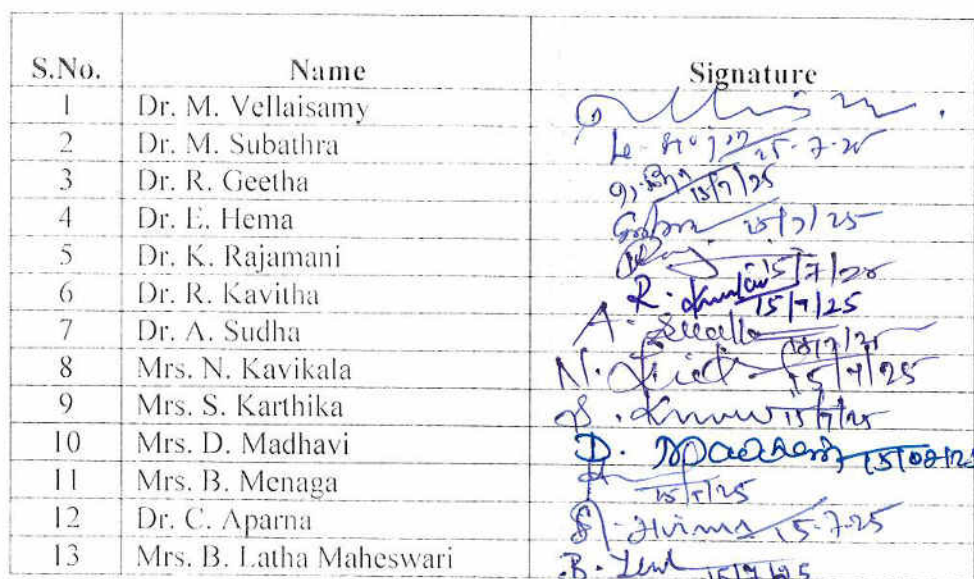 S.No. Name Signature
1 Dr. M. Vellaisamy
2 Dr. M. Subathra 15.7.25
3 Dr. R. Geetha 15/7/25
4 Dr. E. Hema 15/7/25
5 Dr. K. Rajamani 15/7/25
6 Dr. R. Kavitha R. 15/7/25
7 Dr. A. Sudha A. Sudha
8 Mrs. N. Kavikala N. 15/7/25
9 Mrs. S. Karthika S. 15/7/25
10 Mrs. D. Madhavi D.
11 Mrs. B. Menaga
12 Dr. C. Aparna 15.7.25
13 Mrs. B. Latha Maheswari B. 15/7/25